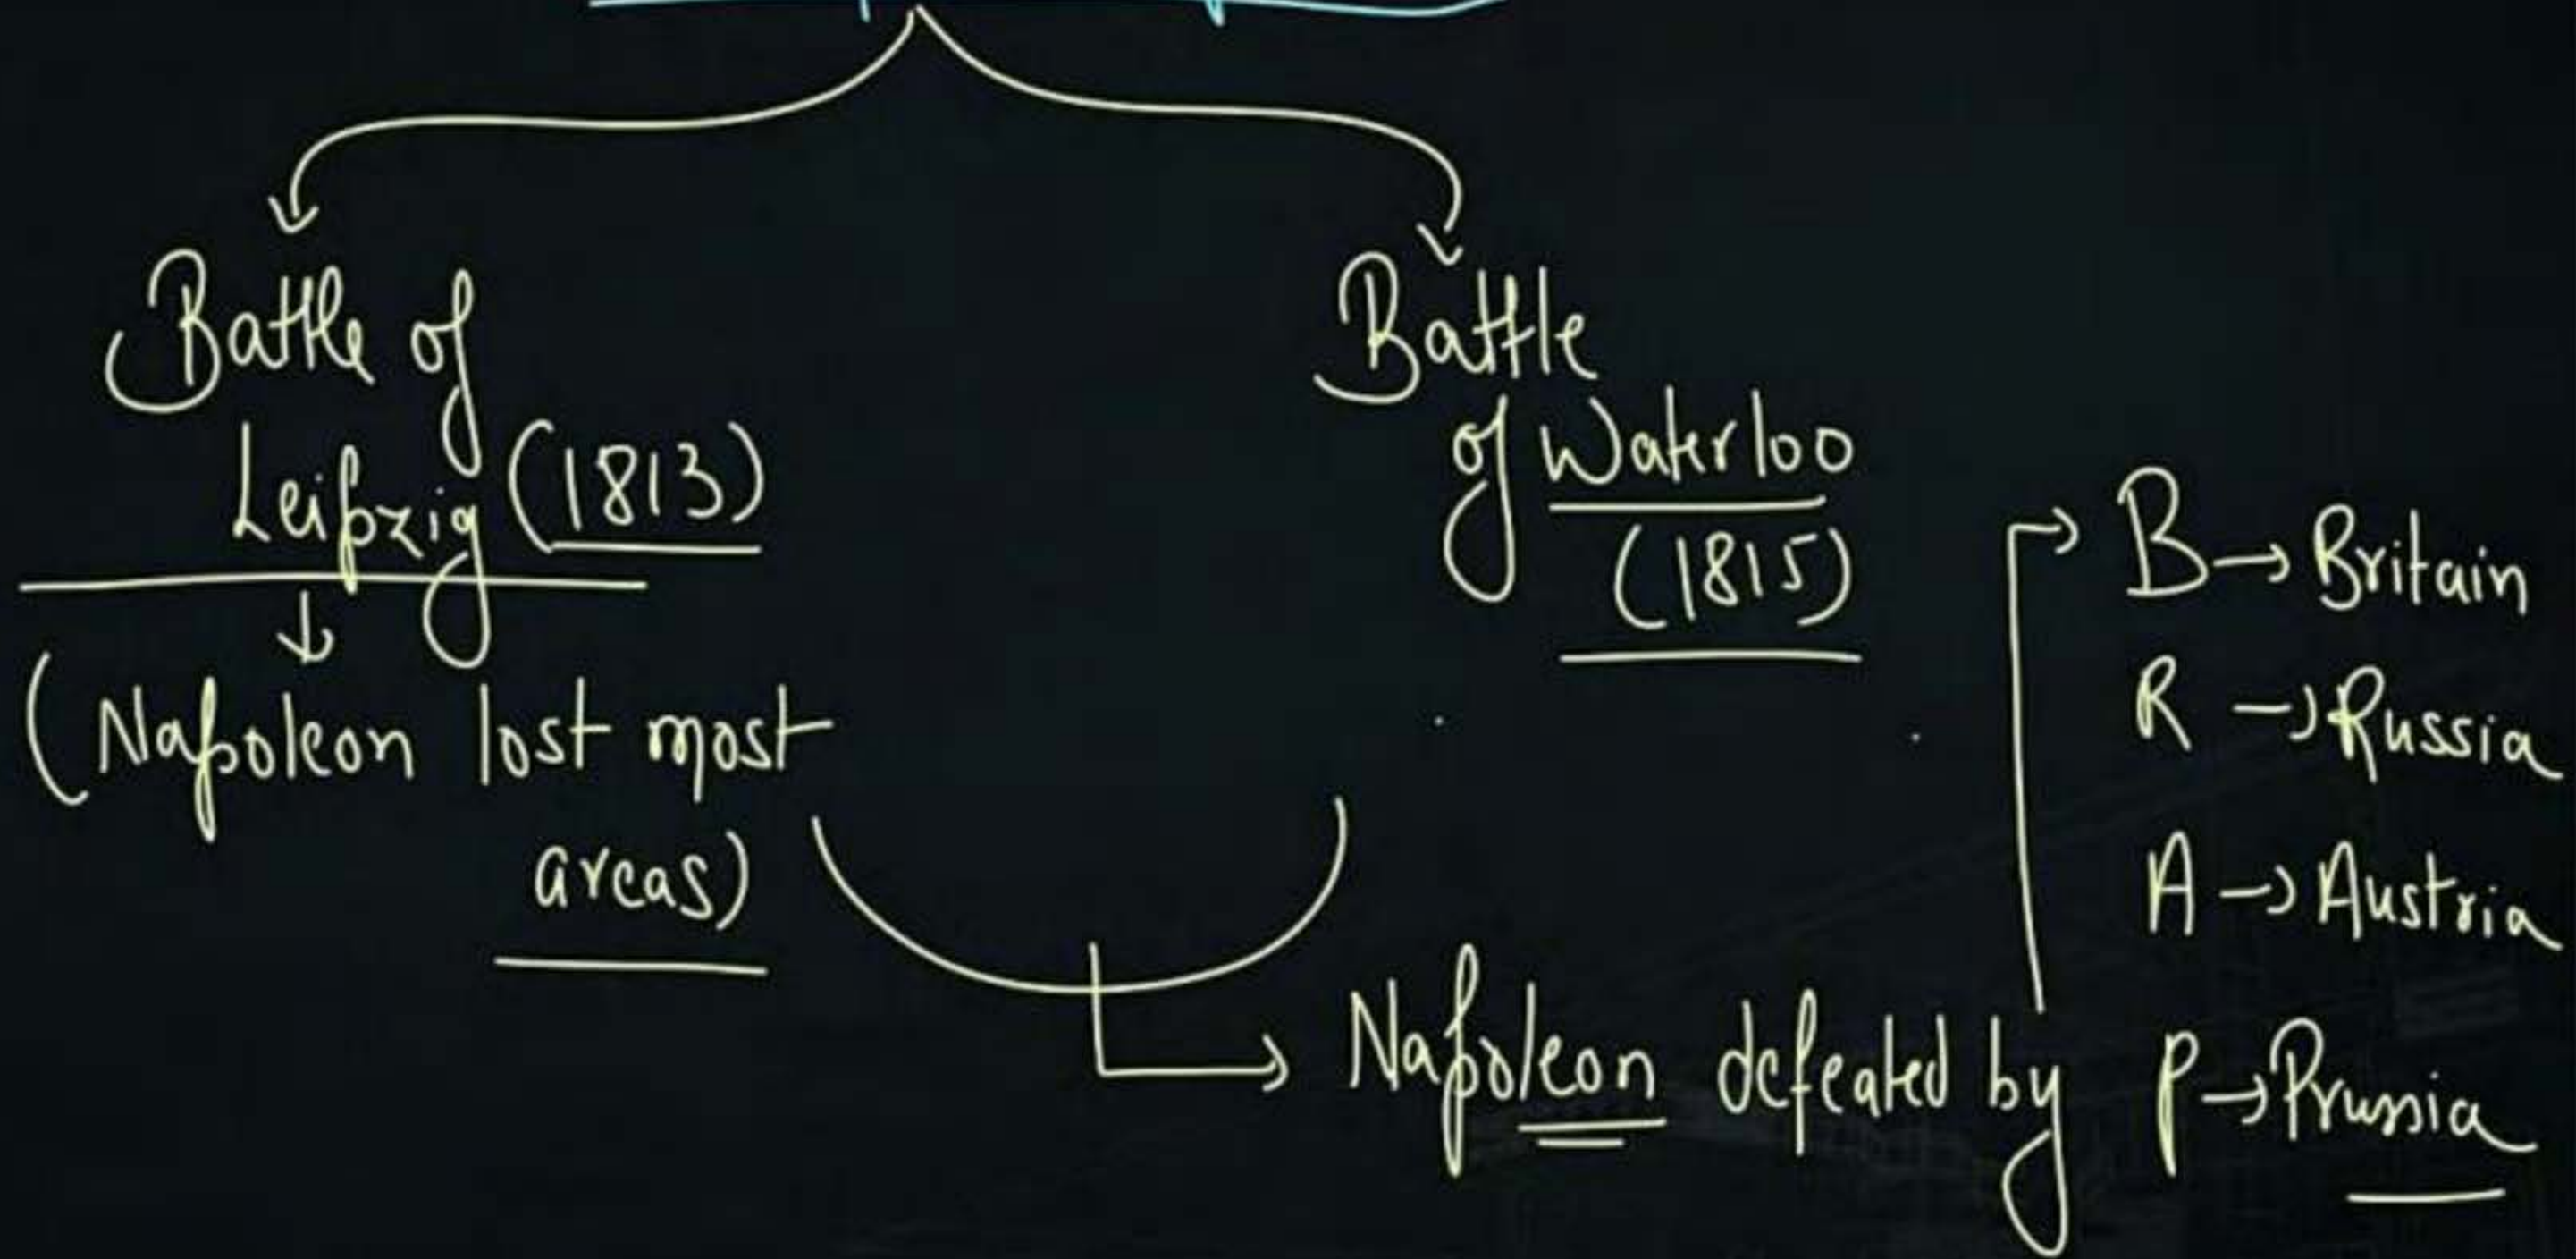 Battle of
Leipzig (1813)
(Napoleon lost most
areas)
Battle
of Waterloo
(1815)
Napoleon defeated by
B → Britain
R → Russia
A → Austria
P → Prussia